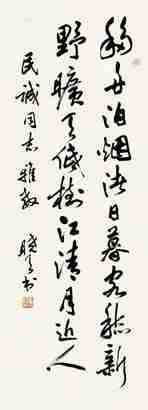 移舟泊烟渚日暮客愁新
野旷天低树江清月近人
民诚同志雅教
晓 书